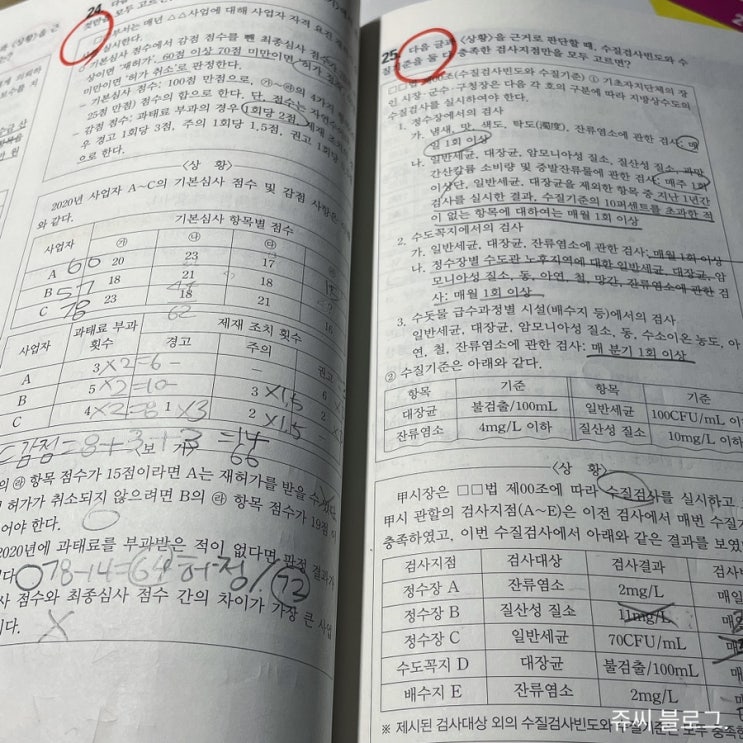 24.
부서는 매년 △△사업에 대해 사업자 자격 요건
실시한다.
기본심사 점수에서 감점 점수를 뺀 최종심사 점수가
상이면 '재허가', 60점 이상 70점 미만이면 '허가 정지'
미만이면 '허가 취소'로 판정한다.
- 기본심사 점수: 100점 만점으로, ㉮~㉱의 4가지 항목
25점 만점) 점수의 합으로 한다. 단, 점수는 자연수
- 감점 점수: 과태료 부과의 경우 1회당 2점, 제재 조치의
우 경고 1회당 3점, 주의 1회당 1.5점, 권고 1회당
으로 한다.
〈상 황〉
2020년 사업자 A~C의 기본심사 점수 및 감점 사항은
와 같다.
사업자 기본심사 항목별 점수
㉮ ㉯ ㉰
A 60 20 23 17
B 57 18 21 18
C 78 23 18 21 16
62
사업자 과태료 부과 횟수 제재 조치 횟수
경고 주의 권고
A 3×2=6 - - 6
B 5×2=10 - 3×1.5 2
C 4×2=8 1×3 2×1.5 -
C감점=8+3+3=14
66
〈보 기〉
의 ㉱ 항목 점수가 15점이라면 A는 재허가를 받을 수
허가가 취소되지 않으려면 B의 ㉱ 항목 점수가 19점
어야 한다.
2020년에 과태료를 부과받은 적이 없다면 판정 결과가
78-14=64 허정 72
사 점수와 최종심사 점수 간의 차이가 가장 큰 사업
이다.
25. 다음 글과 〈상황〉을 근거로 판단할 때, 수질검사빈도와 수
질기준을 둘 다 충족한 검사지점만을 모두 고르면?
□□법 제00조(수질검사빈도와 수질기준) ① 기초자치단체의 장
인 시장·군수·구청장은 다음 각 호의 구분에 따라 지방상수도의
수질검사를 실시하여야 한다.
1. 정수장에서의 검사
가. 냄새, 맛, 색도, 탁도(濁度), 잔류염소에 관한 검사: 매
일 1회 이상
나. 일반세균, 대장균, 암모니아성 질소, 질산성 질소, 과망
간산칼륨 소비량 및 증발잔류물에 관한 검사: 매주 1회
이상단, 일반세균, 대장균을 제외한 항목 중 지난 1년간
검사를 실시한 결과, 수질기준의 10퍼센트를 초과한 적
이 없는 항목에 대하여는 매월 1회 이상
2. 수도꼭지에서의 검사
가. 일반세균, 대장균, 잔류염소에 관한 검사: 매월 1회 이상
나. 정수장별 수도관 노후지역에 대한 일반세균, 대장균, 암
모니아성 질소, 동, 아연, 철, 망간, 잔류염소에 관한 검
사: 매월 1회 이상
3. 수돗물 급수과정별 시설(배수지 등)에서의 검사
일반세균, 대장균, 암모니아성 질소, 동, 수소이온 농도, 아
연, 철, 잔류염소에 관한 검사: 매 분기 1회 이상
② 수질기준은 아래와 같다.
항목 기준 항목 기준
대장균 불검출/100mL 일반세균 100CFU/mL 이
잔류염소 4mg/L 이하 질산성 질소 10mg/L 이하
〈상 황〉
甲시장은 □□법 제00조에 따라 수질검사를 실시하고
甲시 관할의 검사지점(A~E)은 이전 검사에서 매번 수질기
충족하였고, 이번 수질검사에서 아래와 같은 결과를 보였
검사지점 검사대상 검사결과 검사
정수장 A 잔류염소 2mg/L 매일
정수장 B 질산성 질소 11mg/L 매
정수장 C 일반세균 70CFU/mL 매
수도꼭지 D 대장균 불검출/100mL 매
배수지 E 잔류염소 2mg/L 매
※ 제시된 검사대상 외의 수질검사빈도와 수질기준은 모두 충족한
쥬씨 블로그.